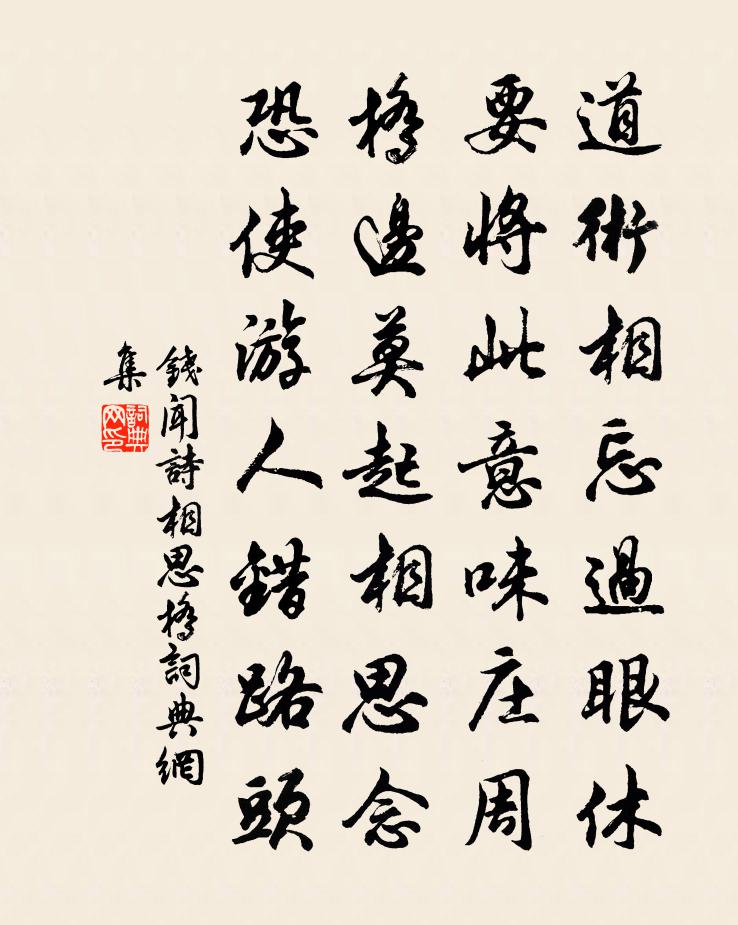 道術相忘過眼休
要將此意味庄周
橋邊莫起相思念
恐使游人錯路頭
錢聞詩相思橋詞典網
集
詞典
网印